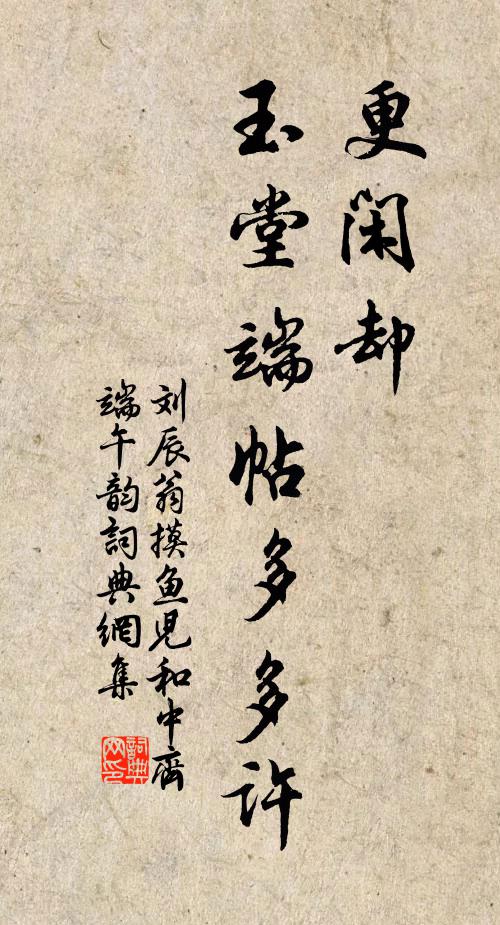 更闲却
玉堂端帖多多许
刘辰翁摸鱼児和中齋
端午韵詞典網集
詞典网印